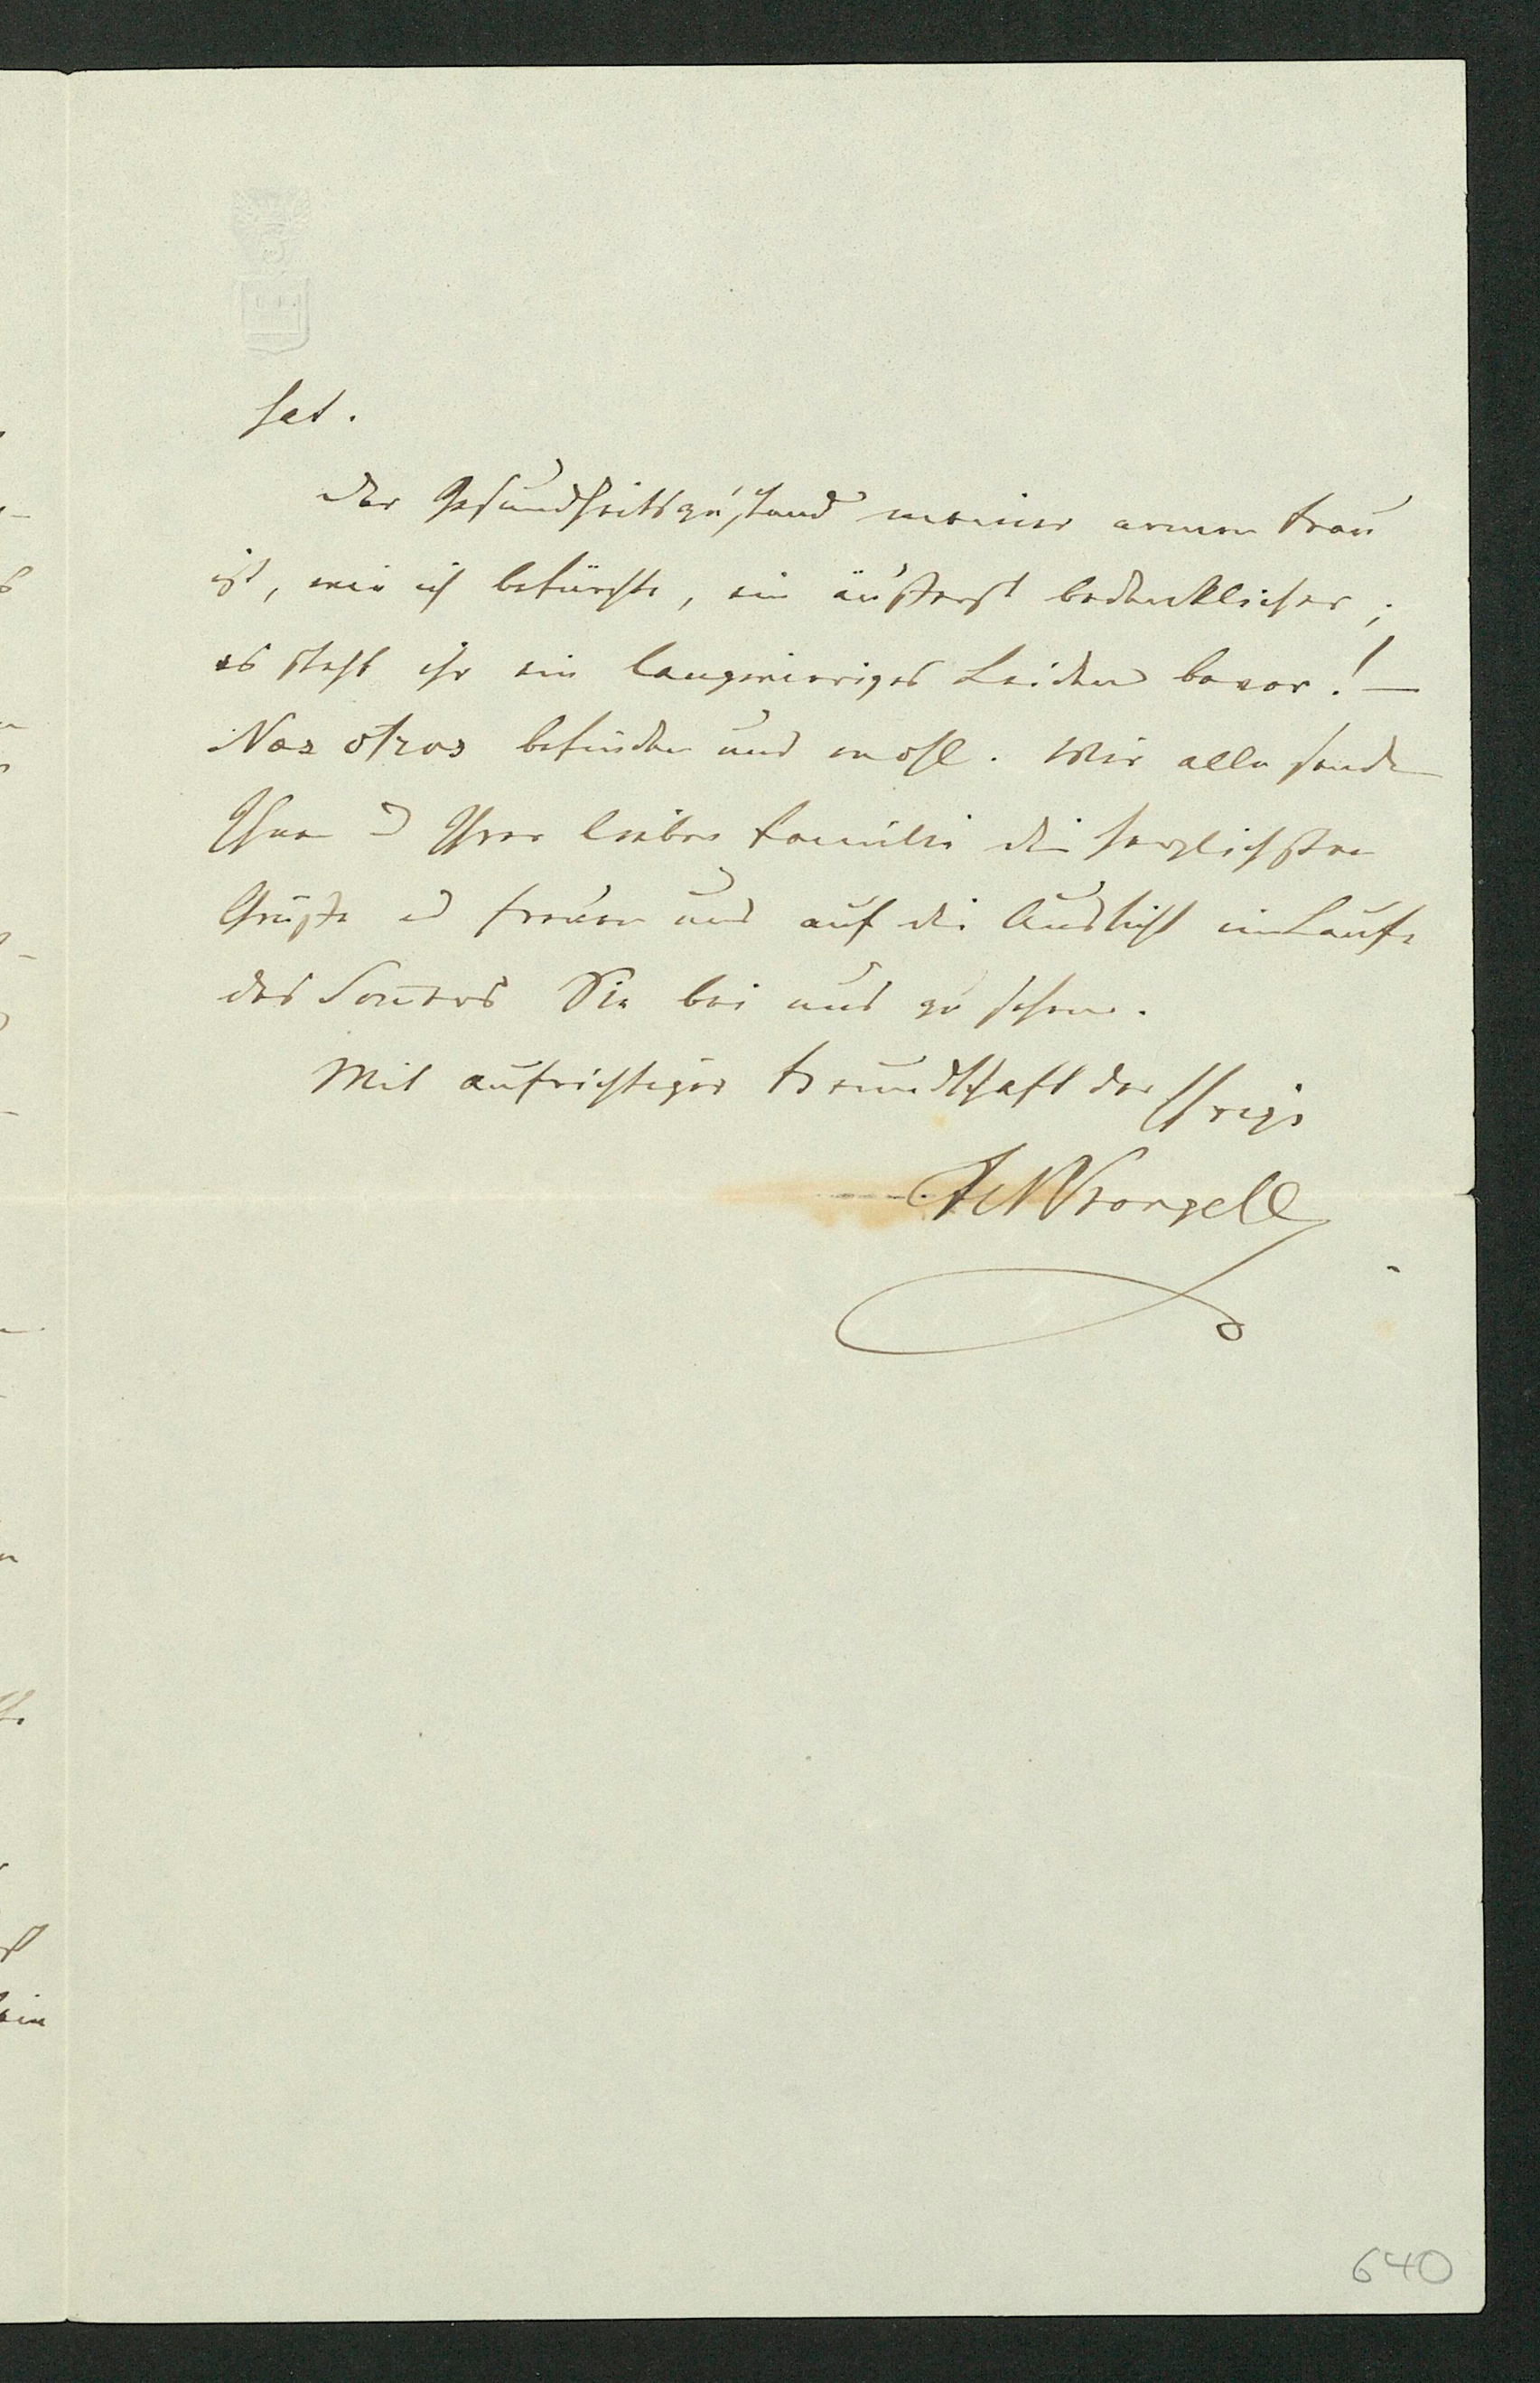 hat.
Der Gesundheitszustand meiner armen Frau
ist, wie ich befürchte, ein äußerst bedenklicher;
es steht ihr ein langwieriges Leiden bevor! —
Nos otros befinden uns wohl. Wir alle senden
Ihnen u Ihrer lieben Familie die herzlichsten
Grüße u freuen uns auf die Aussicht im Laufe
des Som̅ers Sie bei uns zu sehen.
Mit aufrichtiger Freundschaft der Ihrige
Wrangell
640